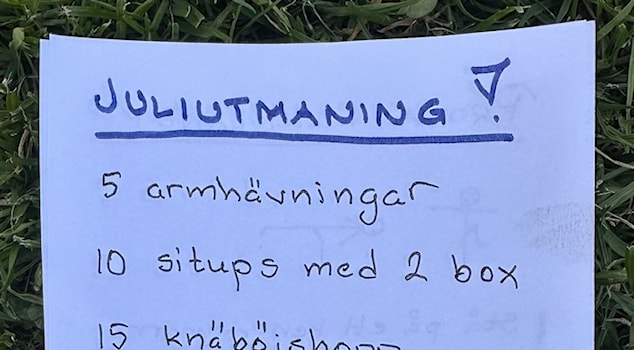 JULIUTMANING!
5 armhävningar
10 situps med 2 box
15